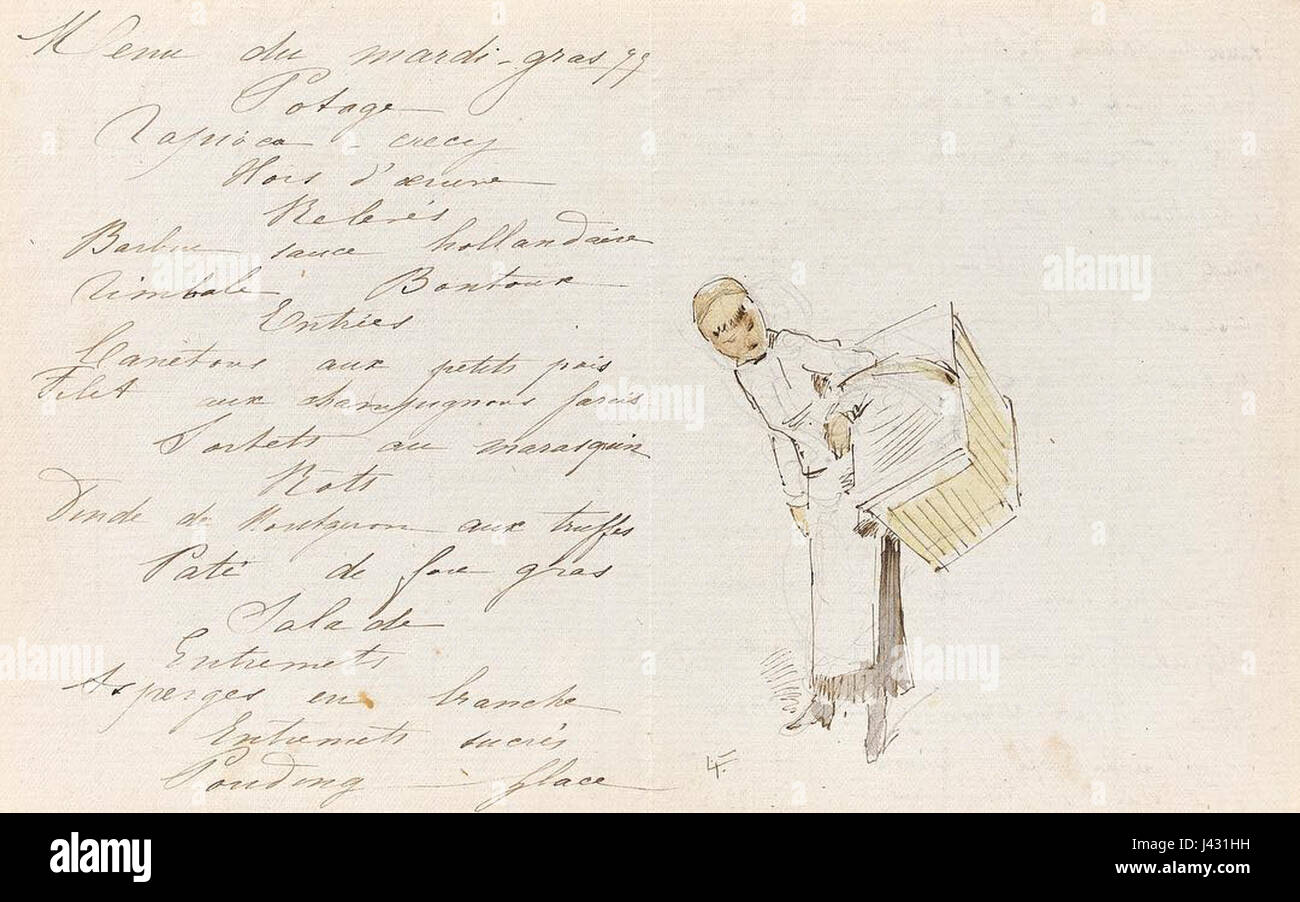 Menu du mardi-gras 79
Potage
Tapioca - crecy
Hors d'œuvre
Relevés
Barbue sauce hollandaise
Timbale Bontoux
Entrées
Canetons aux petits pois
Filet aux champignons farcis
Sorbets au marasquin
Rots
Dinde de aux truffes
Paté de foie gras
Salade
Entremets
Asperges en branche
Entremets sucrés
Pouding glace
LF
alamy
alamy stock photo
J431HH
www.alamy.com